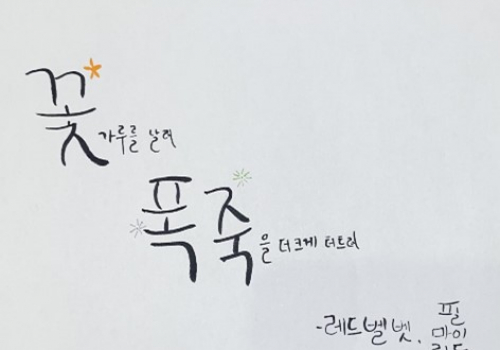 꽃가루를 날려
폭죽을 더 크게 터트려
-레드벨벳, 필
마이